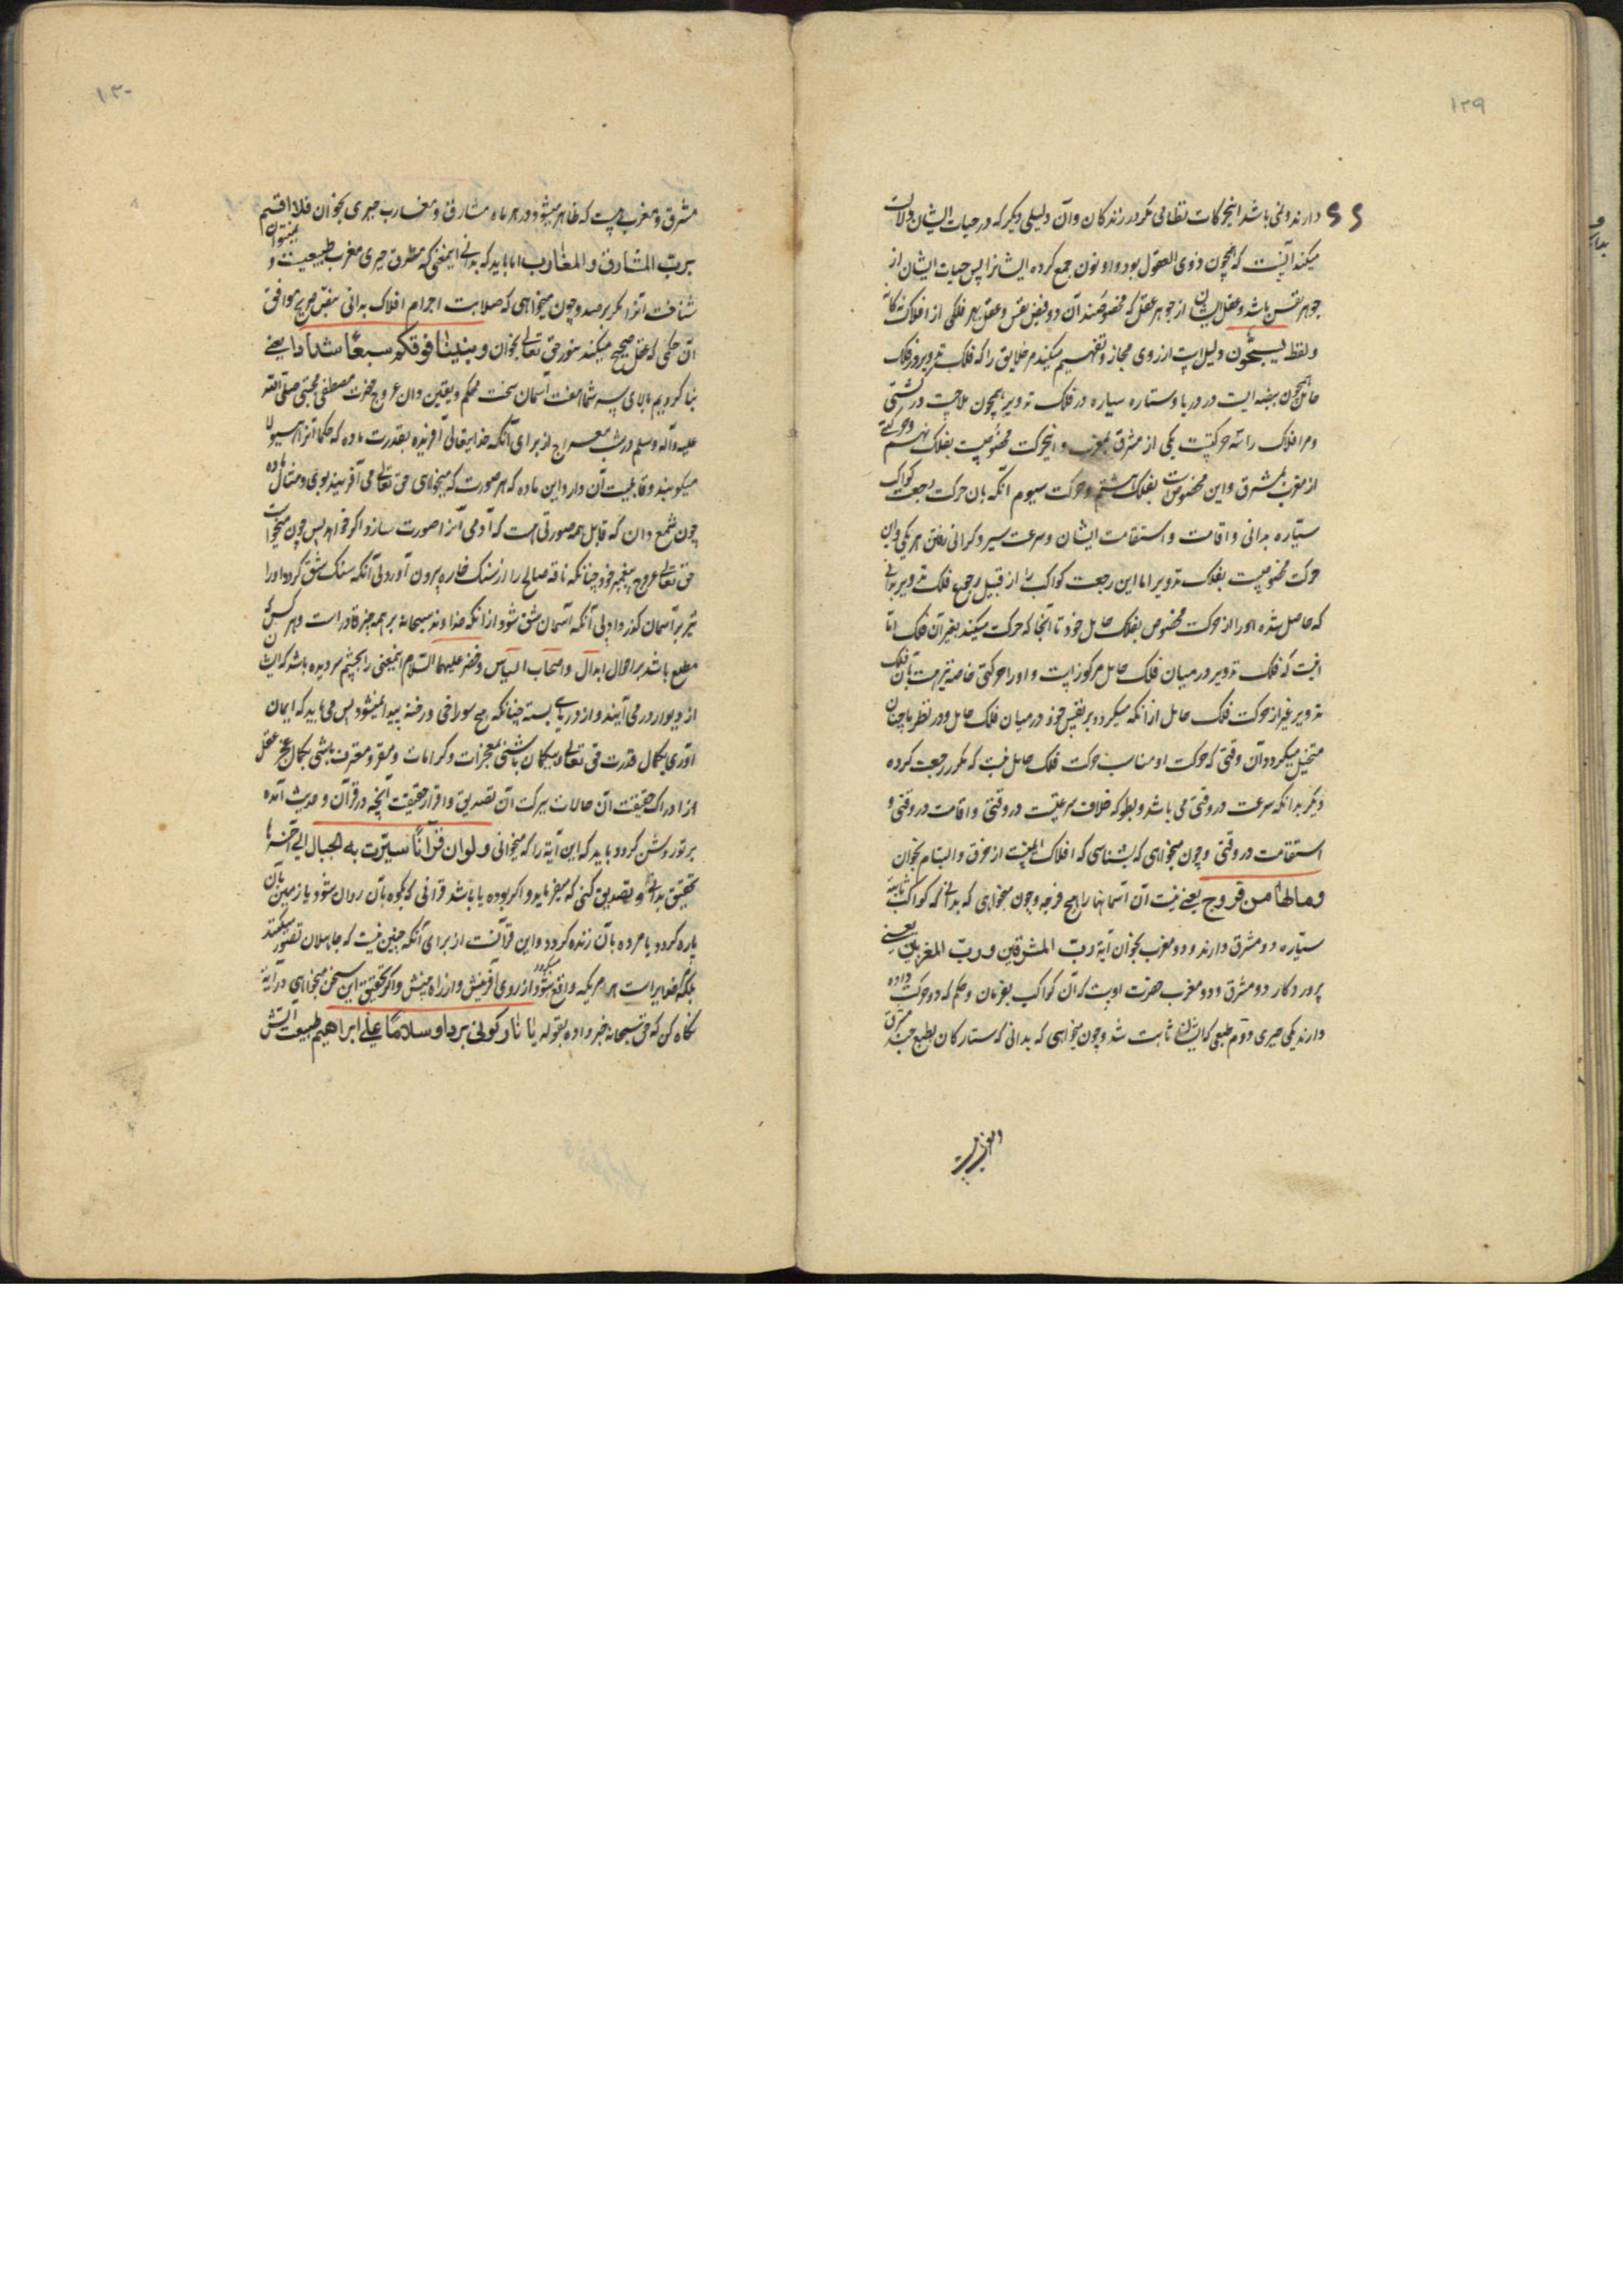 ۱۲۹
دارند و نمی باشد اینحرکات نظامی مگر در زندگان و آن دلیلی دیگر که در حیات ایشان دلالت
میکند آنست که همچون ذوی العقول بود و او و نون جمع کرده ایشانرا پس حیات ایشان از
جوهر نفس باشد و عقل ایشان از جوهر عقل که مخصوصند آن دو فیض نفس و عقل بهر فلکی از افلاک
و لفظ یسبحون دلیل است از روی مجاز و تفهیم میکند مر خلایق را که فلک تدویر در فلک
حامل همچون بیضه ایست در دریا و ستاره سیاره در فلک تدویر همچون ملاحیست در کشتی
و مر افلاک را سه حرکتست یکی از مشرق بمغرب و اینحرکت مخصوصست بفلک نهم و حرکتی
از مغرب بمشرق و این مخصوص است بفلک هشتم و حرکت سیوم آنکه بآن حرکت رجعت کواکب
سیاره بدانی و اقامت و استقامت ایشان و سرعت سیر و گرانی رفتن هر یکی و آن
حرکت مخصوصست بفلک تدویر اما این رجعت کواکب را از قبیل رجوع فلک تدویر بدانی
که حاصل شده او را از حرکت مخصوص بفلک حامل خود تا آنجا که حرکت میکند بغیر آن فلک اما
اینست که فلک تدویر در میان فلک حامل مرکوزست و او را حرکتی خاصه نیز هست بآن فلک
تدویر غیر از حرکت فلک حامل از آنکه میگردد بر نفس خود در میان فلک حامل و در نظر ما چنان
متخیل میگردد آن وقتی که حرکت او مناسب حرکت فلک حامل نیست که مگر رجعت کرده
دیگر بدانکه سرعت در وقتی می باشد و بطو که خلاف سرعتست در وقتی و اقامت در وقتی و
استقامت در وقتی و چون میخواهی که بشناسی که افلاک ایمنست از خرق و التیام بخوان
و مالها من فروج یعنی نیست آن آسمانها را هیچ فرجه و چون میخواهی که بدانی که کواکب ثابته
سیاره دو مشرق دارند و دو مغرب بخوان آیة رب المشرقین و رب المغربین یعنی
پروردگار دو مشرق و دو مغرب حضرت اوست که آن کواکب بفرمان و حکم که دو حرکت داده
دارند یکی جبری دوم طبعی که ایشان را ثابت شد و چون میخواهی که بدانی که ستارگان بطبع چند مشرق
۱۳۰
مشرق و مغربست که ظاهر میشود در هر ماه مشارق و مغارب جبری بخوان فلا اقسم
برب المشارق و المغارب اما باید که بدانی اینمعنی که مشرق جبری مغرب طبیعیست و نمیتوان
شناخت آنرا مگر برصد و چون میخواهی که صلابت اجرام افلاک بدانی بنص صریح موافق
آن حکمی که عقل صحیح میکند بنور حق تعالی بخوان و بنینا فوقکم سبعا شدادا یعنی
بنا کردیم بالای سر شما هفت آسمان سخت محکم و یقین دان عروج حضرت مصطفی مجتبی صلی الله
علیه و آله و سلم در شب معراج از برای آنکه خدایتعالی آفریننده بقدرت ماده که حکما آنرا هیولا
میگویند و قابلیت آن دارد این ماده که هر صورت که میخواهی حق تعالی می آفریند بوی و مثال ماده
چون شمع دان که قابل همه صورتی است که آدمی آنرا صورت سازد اگر خواهد پس چون میخواست
حق تعالی عروج پیغمبر خود چنانکه ناقه صالح را از سنگ خاره بیرون آورد بی آنکه سنگ شق گردد او را
نیز بر آسمان گذر داد بی آنکه آسمان شق شود از آنکه خداوند سبحانه بر همه چیز قادر است و هر کس که
مطلع باشد بر احوال ابدال و اصحاب الیاس و خضر علیهما السلام اینمعنی را بچشم سر دیده باشد که ایشان
از دیوار در می آیند و از در های بسته چنانکه هیچ سوراخی و رخنه پیدا نمیشود پس می باید که ایمان
آوری بکمال قدرت حق تعالی و بیگمان باشی بمعجزات و کرامات و مقر و معترف باشی بکمال عجز عقل
از ادراک حقیقت آن حالات ببرکت آن تصدیق و اقرار حقیقت آنچه در قرآن و حدیث آمده
بر تو روشن گردد و باید که این آیه را که میخوانی و لو ان قرآنا سیرت به الجبال الی آخرها
تحقیق بدانی و تصدیق کنی که میفرماید و اگر بوده یا باشد قرآنی که کوه بآن روان شود یا زمین بآن
پاره گردد یا مرده بآن زنده گردد و این قرآنست از برای آنکه چنین نیست که جاهلان تصور میکنند
بلکه خدایراست هر امر یکه واقع میگردد شود از روی آفرینش و از راه بینش و اگر تحقیق این سخن میخواهی در آیة
نگاه کن که حق سبحانه خبر داده بقوله یا نار کونی بردا و سلاما علی ابراهیم طبیعت آتش